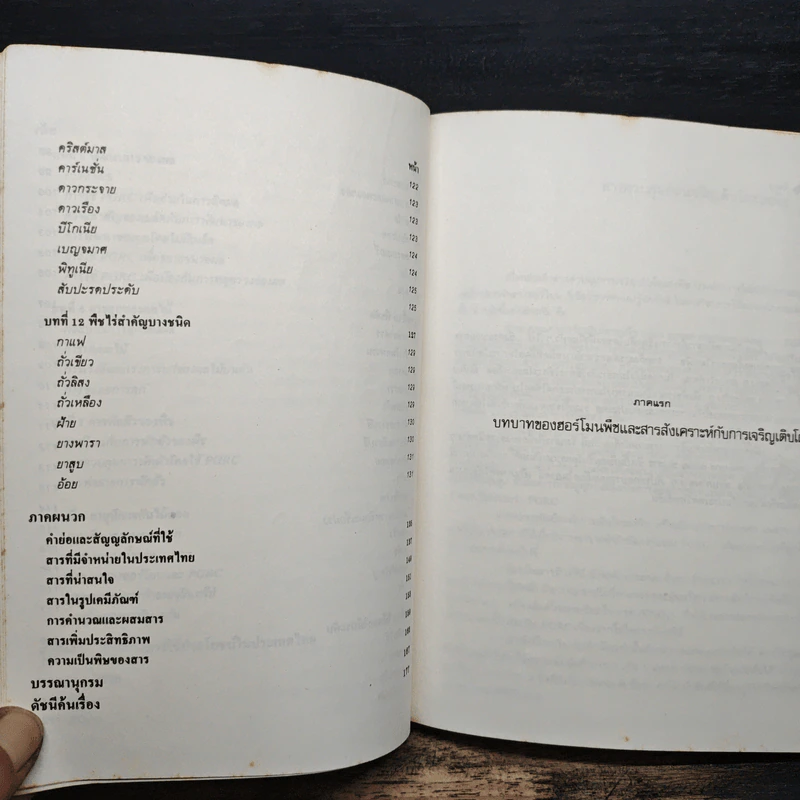 หน้า
คริสต์มาส 122
คาร์เนชั่น 123
ดาวกระจาย 123
ดาวเรือง 123
บีโกเนีย 124
เบญจมาศ 124
พิทูเนีย 125
สับปะรดประดับ
บทที่ 12 พืชไร่สำคัญบางชนิด 127
กาแฟ 129
ถั่วเขียว 129
ถั่วลิสง 129
ถั่วเหลือง 129
ฝ้าย 130
ยางพารา 130
ยาสูบ 131
อ้อย 131
ภาคผนวก
คำย่อและสัญญลักษณ์ที่ใช้
สารที่มีจำหน่ายในประเทศไทย
สารที่น่าสนใจ
สารในรูปเคมีภัณฑ์
การคำนวณและผสมสาร
สารเพิ่มประสิทธิภาพ
ความเป็นพิษของสาร
บรรณานุกรม
ดัชนีค้นเรื่อง 177
ภาคแรก
บทบาทของฮอร์โมนพืชและสารสังเคราะห์กับการเจริญเติบโ